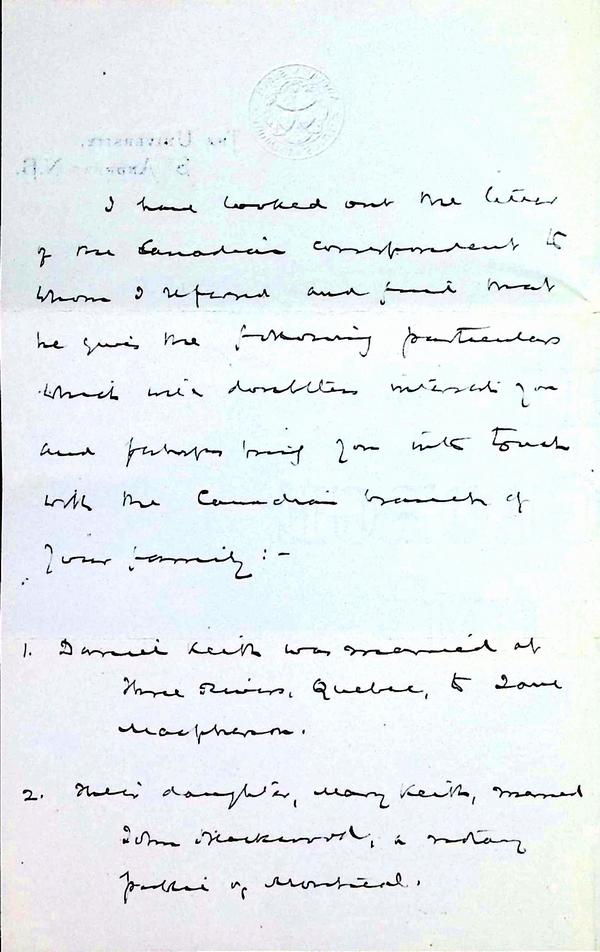 The University,
St Andrews N.B.
I have looked out the letter
of the Canadian correspondent to
whom I referred and find that
he gives the following particulars
which will doubtless interest you
and perhaps bring you into touch
with the Canadian branch of
your family:-
1. Daniel Keith was married at
Three Rivers, Quebec, to Jane
Macpherson.
2. Their daughter, Mary Keith, married
John Blackwood, a notary
public of Montreal.